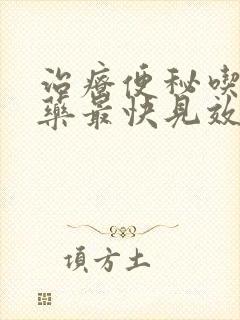 治療便秘喫
藥最快見效
項方土